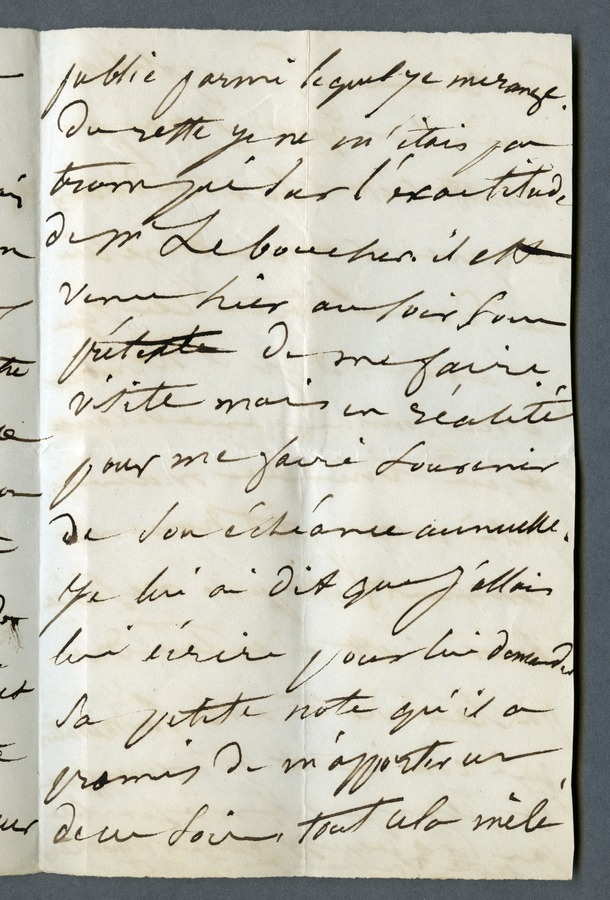 public parmi lequel je me range.
Du reste je ne m'étais pas
trompé sur l'exactitude
de Mr Leboucher. il est
venu hier au soir sous
prétexte de me faire
visite mais en réalité
pour me faire souvenir
de son échéance annuelle.
Je lui ai dit que j'allais
lui écrire pour lui demander
sa petite note qu'il a
promis de m'apporter
ce soir, tout cela mêlé